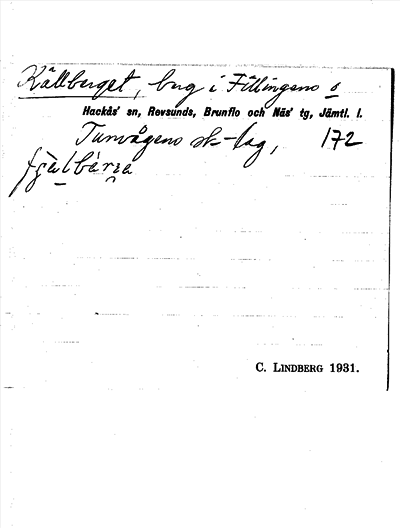 Källberget, bug i Fillingens s
Hackås' sn, Revsunds, Brunflo och Näs' tg, Jämtl. l.
Tunvågens sk-lag, 172
C. LINDBERG 1931.